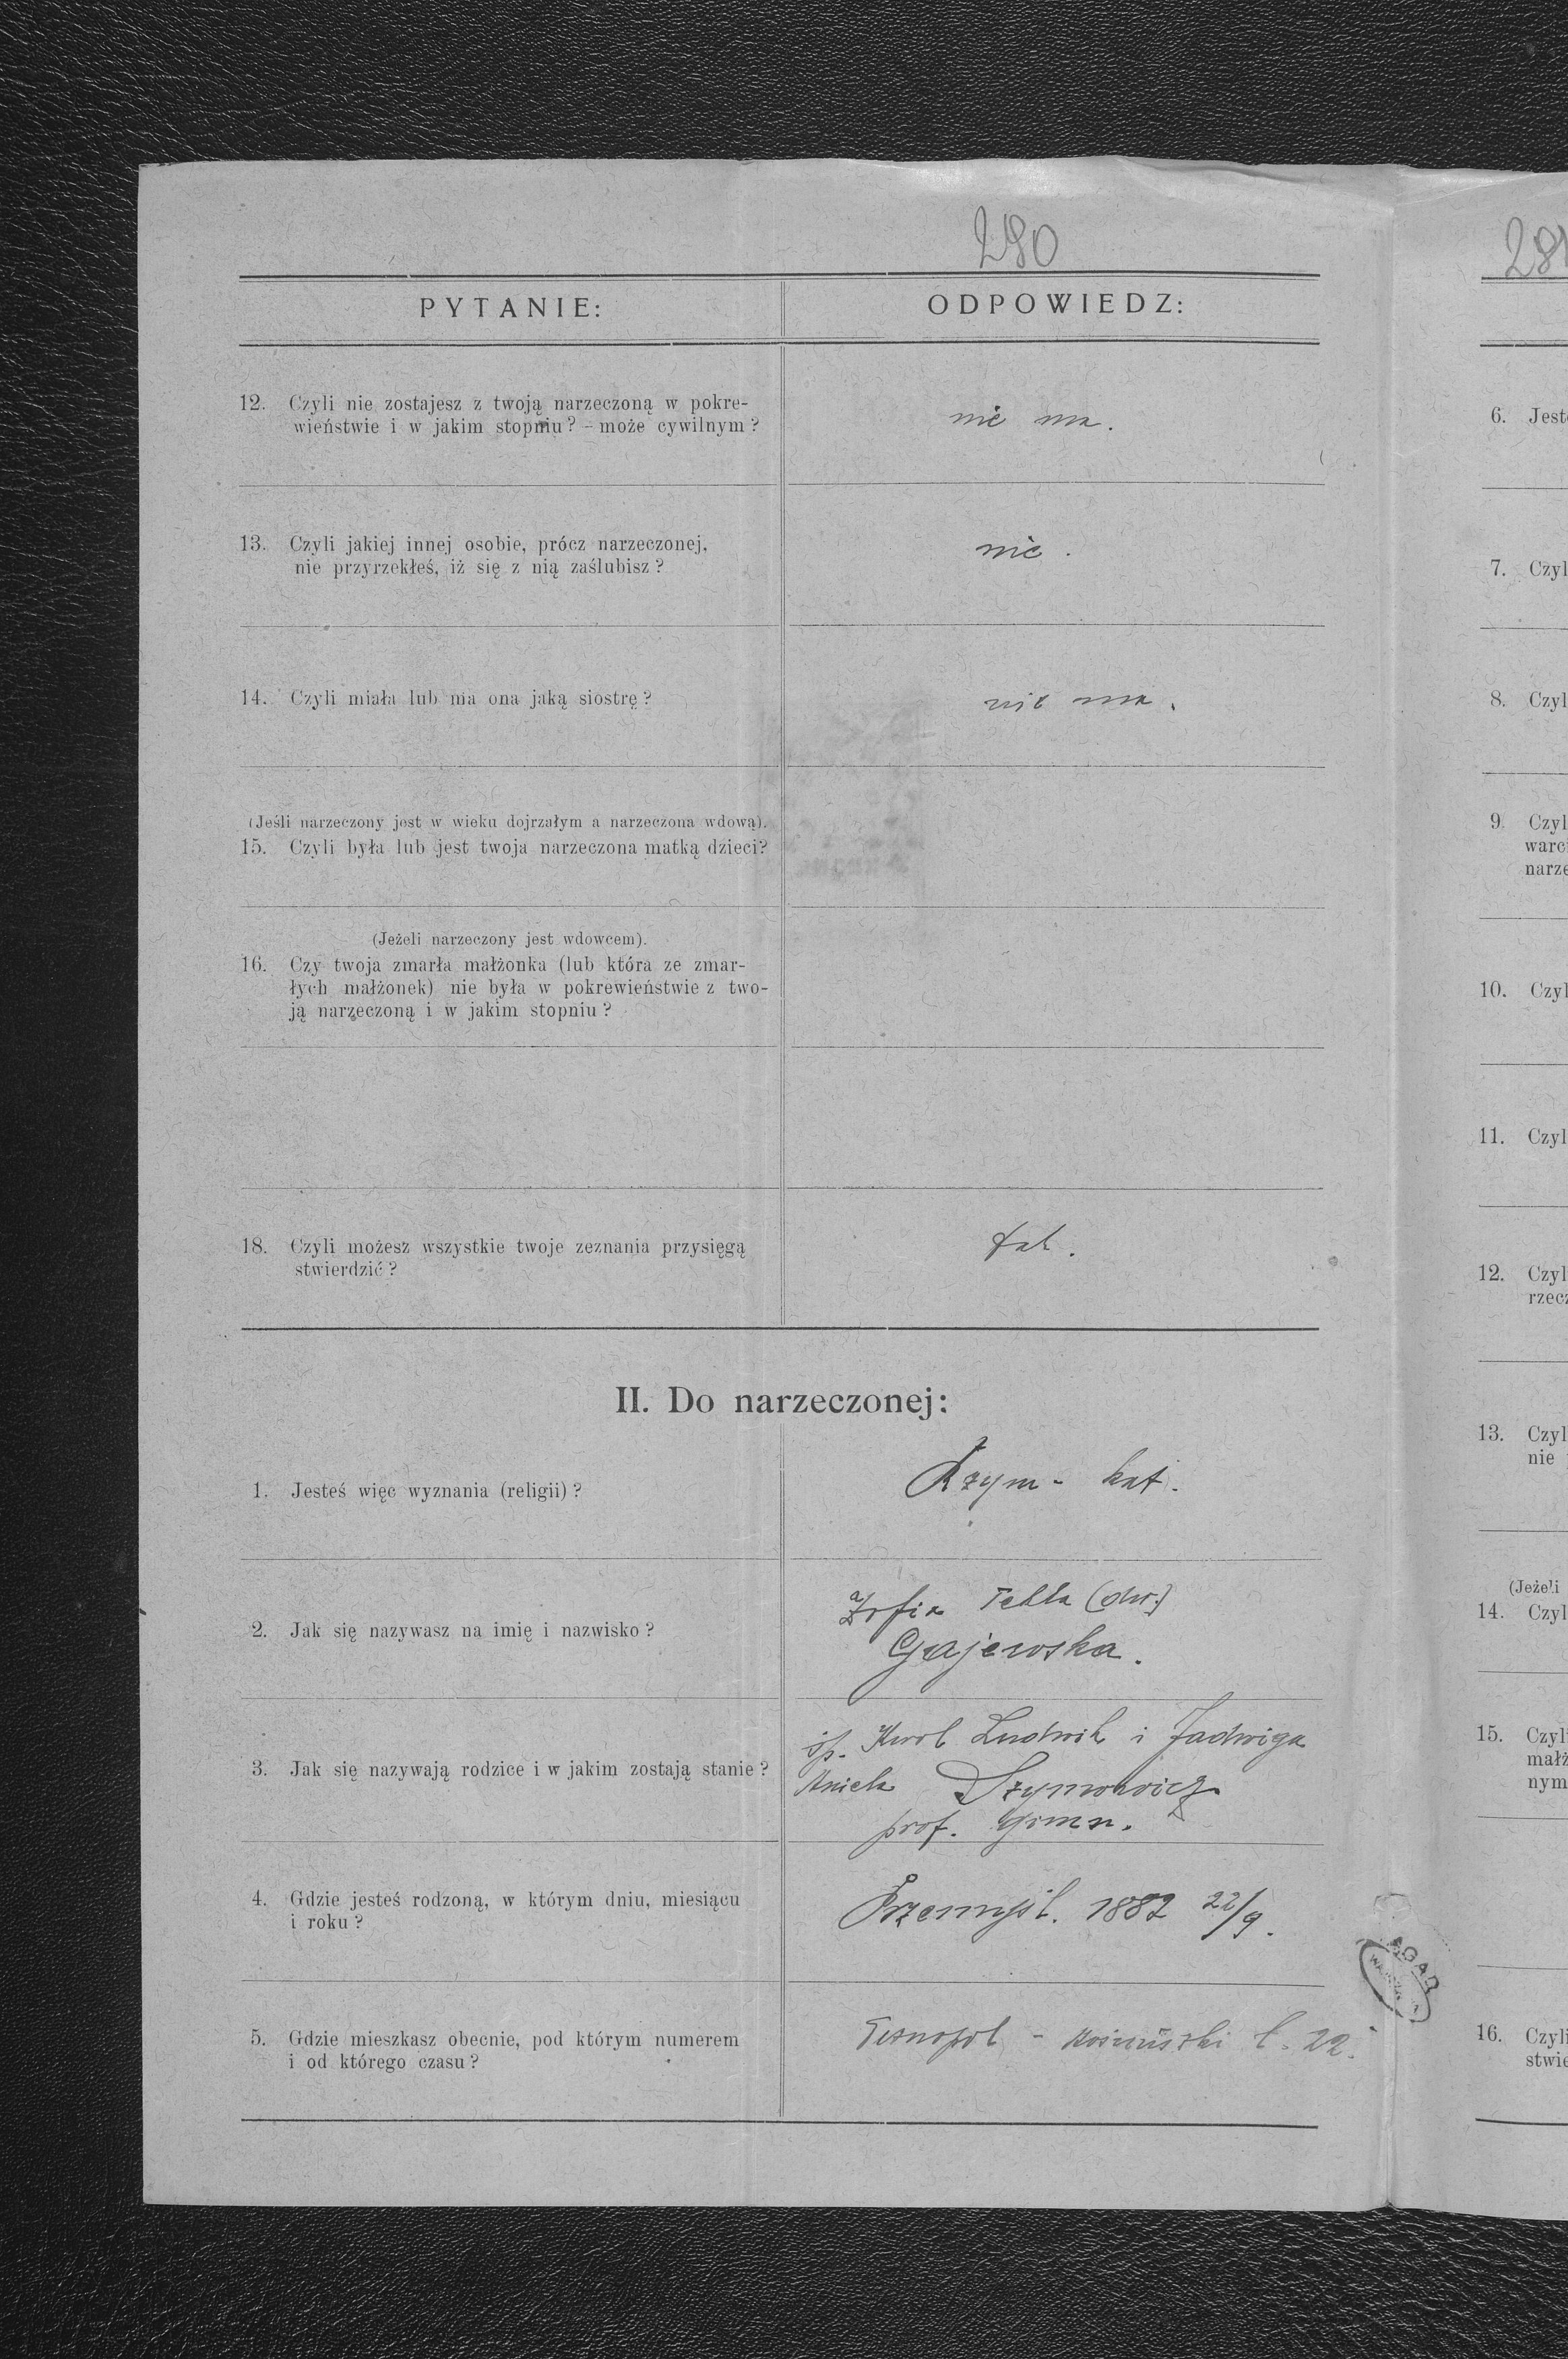 280
PYTANIE:
ODPOWIEDZ:
12. Czyli nie zostajesz z twoją narzeczoną w pokre-
wieństwie i w jakim stopniu? - może cywilnym?
nie ma.
13. Czyli jakiej innej osobie, prócz narzeczonej,
nie przyrzekłeś, iż się z nią zaślubisz?
nie.
14. Czyli miała lub ma ona jaką siostrę?
nie ma.
(Jeśli narzeczony jest w wieku dojrzałym a narzeczona wdową).
15. Czyli była lub jest twoja narzeczona matką dzieci?
(Jeżeli narzeczony jest wdowcem).
16. Czy twoja zmarła małżonka (lub która ze zmar-
łych małżonek) nie była w pokrewieństwie z two-
ją narzeczoną i w jakim stopniu?
18. Czyli możesz wszystkie twoje zeznania przysięgą
stwierdzić?
tak.
II. Do narzeczonej:
1. Jesteś więc wyznania (religii)?
Rzym-kat.
2. Jak się nazywasz na imię i nazwisko?
Zofia Tekla (dw.)
Gajewska.
3. Jak się nazywają rodzice i w jakim zostają stanie?
śp. Karol Ludwik i Jadwiga
Aniela Szymonowicz
prof. gimn.
4. Gdzie jesteś rodzoną, w którym dniu, miesiącu
i roku?
Przemyśl. 1882 22/9.
5. Gdzie mieszkasz obecnie, pod którym numerem
i od którego czasu?
Tarnopol - l. 22.
AGAD
281
6. Jest
7. Czyl
8. Czyl
9. Czyl
warc
narze
10. Czyl
11. Czyl
12. Czyl
rzecz
13. Czyl
nie
(Jeżeli
14. Czyl
15. Czyl
małż
nym
16. Czyli
stwie